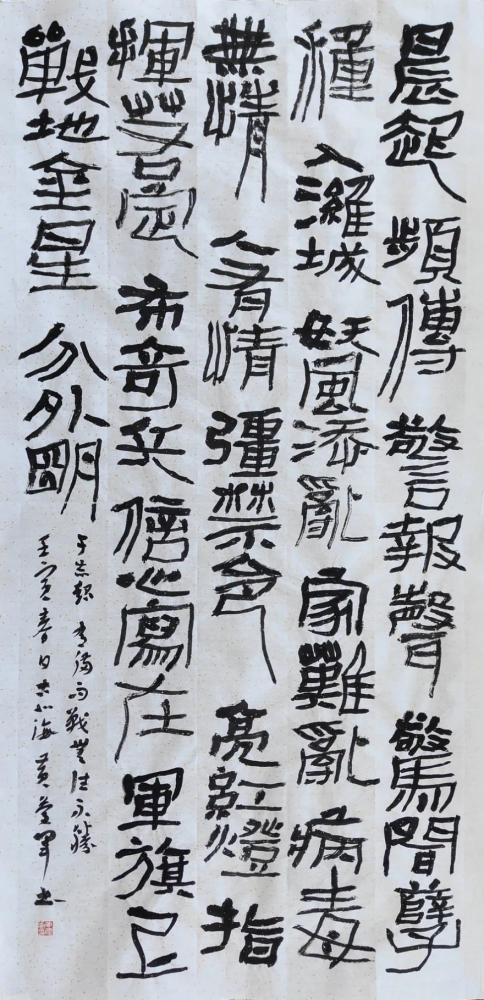 晨起頻傳警報聲驚聞孽
種入濰城妖風添亂家難亂病毒
無情人有情彊禁令亮紅燈指
揮若定布奇兵信心寫在軍旗上
戰地金星分外明
于志超而戰無往不勝
壬寅春日海黃書